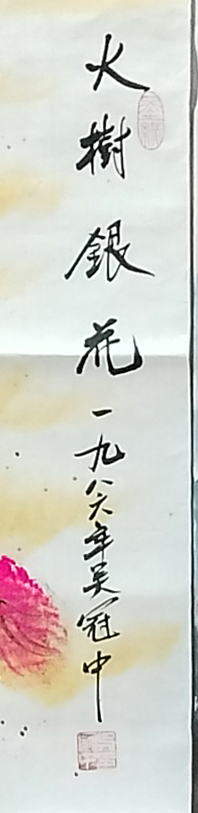 火樹銀花一九八六年吴冠中